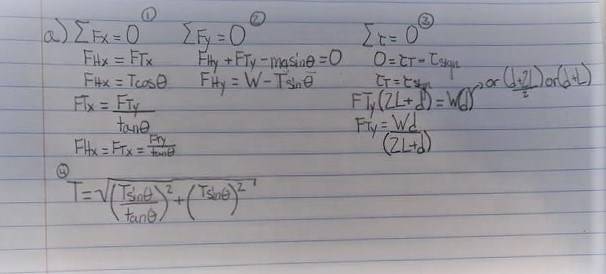 a) ΣFx = 0 ①
FHx = FTx
FHx = Tcosθ
FTx = FTy/tanθ
FHx = FTx = FTy/tanθ
ΣFy = 0 ②
FHy + FTy - mgsinθ = 0
FHy = W - Tsinθ
Στ = 0 ③
0 = τT - τsign
τT = τsign
FTy(2L+d) = W(d) → or (d+2L)/2 or (d+L)
FTy = Wd/(2L+d)
④
T = √((Tsinθ/tanθ)² + (Tsinθ)²)